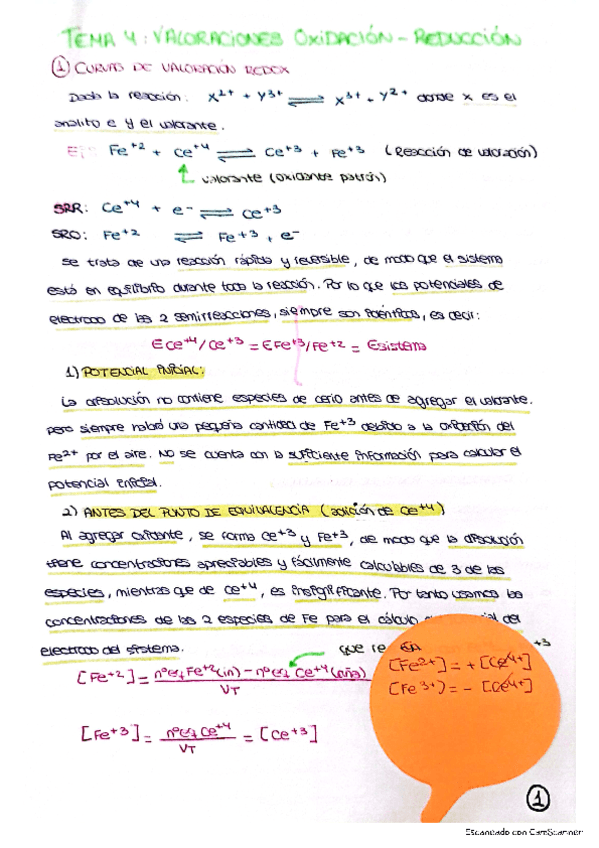 TEMA 4: VALORACIONES OXIDACIÓN - REDUCCIÓN
① CURVAS DE VALORACIÓN REDOX
Dada la reacción: X²⁺ + Y³⁺ ⇌ X³⁺ + Y²⁺ donde x es el
analito e y el valorante.
Ej: Fe⁺² + Ce⁺⁴ ⇌ Ce⁺³ + Fe⁺³ (Reacción de valoración)
valorante (oxidante patrón)
SRR: Ce⁺⁴ + e⁻ ⇌ Ce⁺³
SRO: Fe⁺² ⇌ Fe⁺³ + e⁻
Se trata de una reacción rápida y reversible, de modo que el sistema
está en equilibrio durante toda la reacción. Por lo que los potenciales de
electrodo de las 2 semirreacciones, siempre son idénticos, es decir:
ECe⁺⁴/Ce⁺³ = EFe⁺³/Fe⁺² = Esistema
1) POTENCIAL INICIAL:
La disolución no contiene especies de cerio antes de agregar el valorante.
pero siempre habrá una pequeña cantidad de Fe⁺³ debido a la oxidación del
Fe²⁺ por el aire. No se cuenta con la suficiente información para calcular el
potencial inicial.
2) ANTES DEL PUNTO DE EQUIVALENCIA (adición de Ce⁺⁴)
Al agregar oxidante, se forma Ce⁺³ y Fe⁺³, de modo que la disolución
tiene concentraciones apreciables y fácilmente calculables de 3 de las
especies, mientras que de Ce⁺⁴, es insignificante. Por tanto usamos las
concentraciones de las 2 especies de Fe para el cálculo del
electrodo del sistema.
que
[Fe⁺²] = nºeq Fe⁺²(in) - nºeq Ce⁺⁴(aña) / VT
[Fe²⁺] = + [Ce⁴⁺]
[Fe³⁺) = - [Ce⁴⁺]
[Fe⁺³] = nºeq Ce⁺⁴ / VT = [Ce⁺³]
1
Escaneado con CamScanner